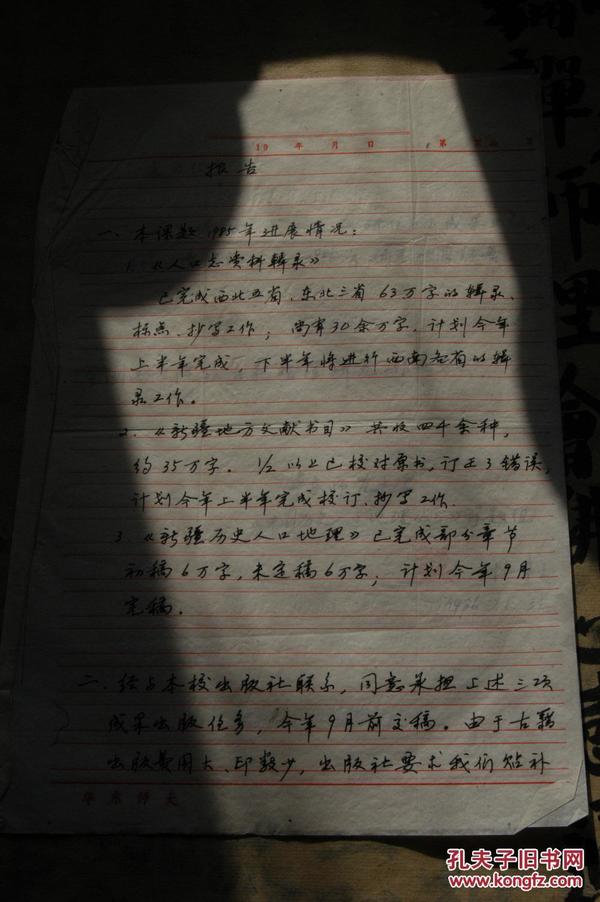 19 年 月 日 第 页
报告
一、本课题1985年进展情况：
1.《人口志资料辑录》
已完成西北五省、东北三省63万字的辑录、
标点、抄写工作；尚有30余万字，计划今年
上半年完成，下半年将进行西南各省的辑
录工作。
2.《新疆地方文献书目》共收四千余种，
约35万字。1/2以上已校对原书，订正了错误，
计划今年上半年完成校订、抄写工作.
3.《新疆历史人口地理》已完成部分章节
初稿6万字，未定稿6万字；计划今年9月
完稿。
二、经与本校出版社联系，同意承担上述三项
成果出版任务，今年9月前交稿。由于古籍
出版费用大、印数少，出版社要求我们贴补
华东师大
孔夫子旧书网
www.kongfz.com